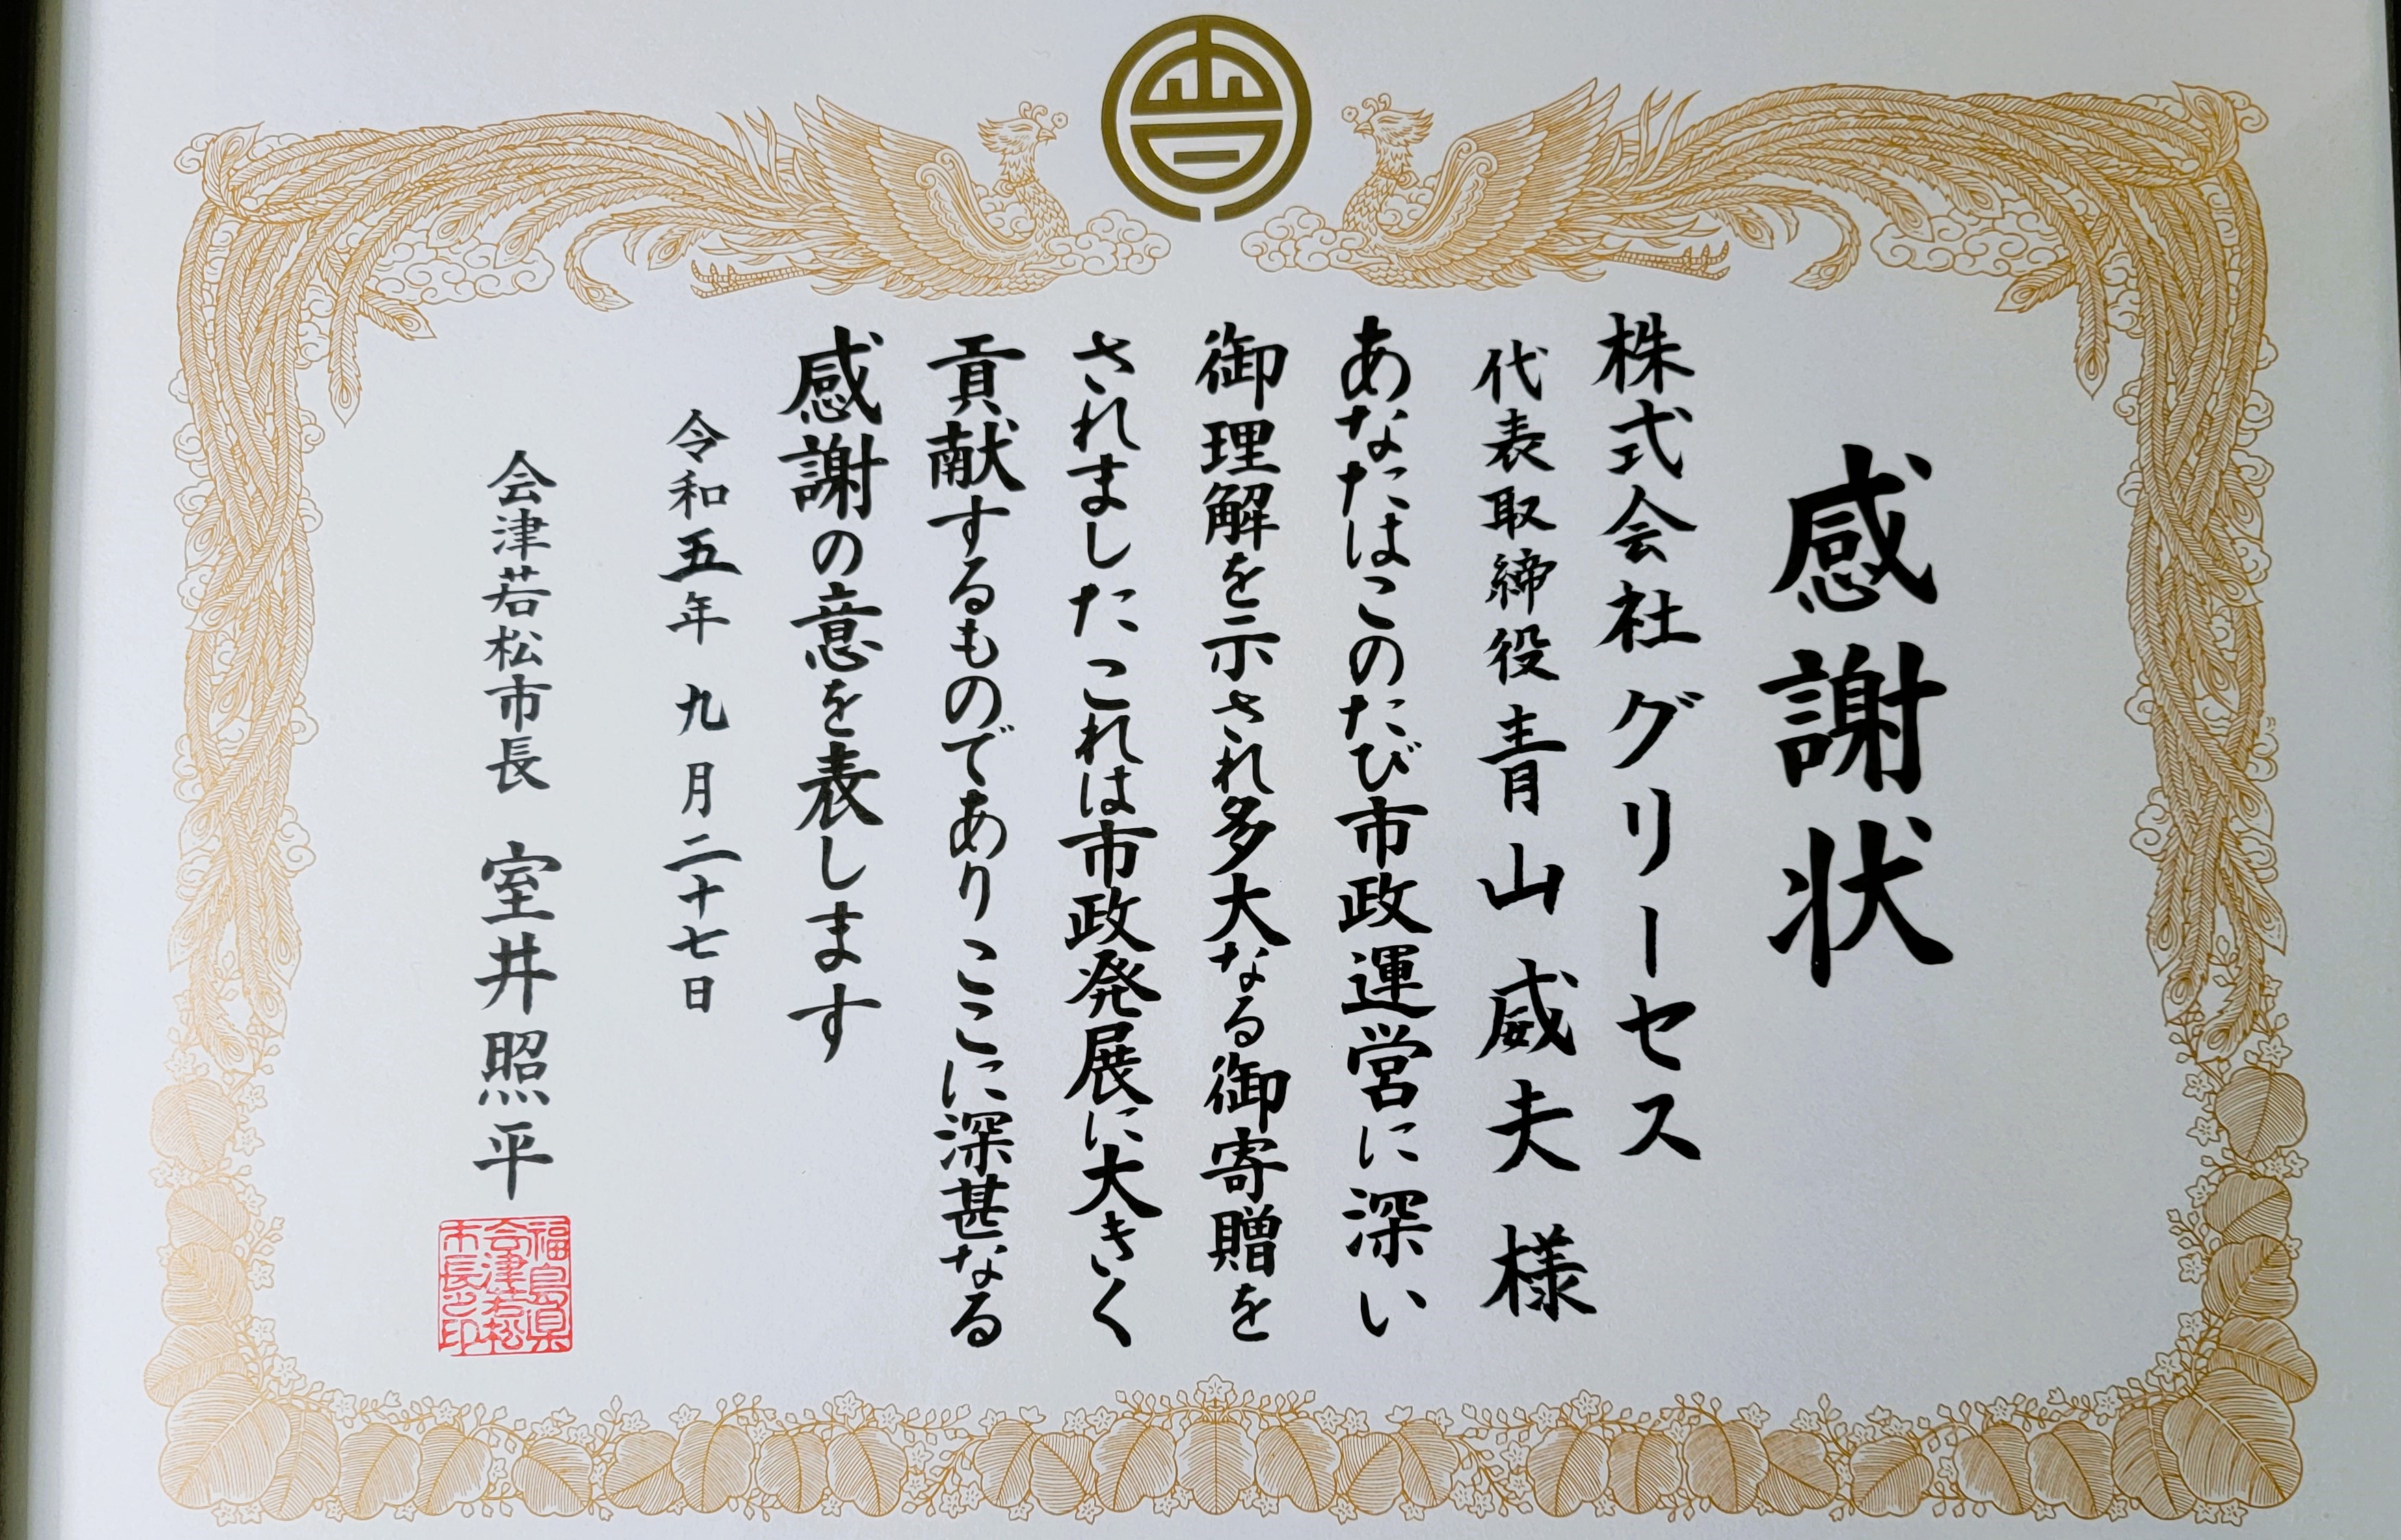 感謝状
株式会社グリーセス
代表取締役青山威夫様
あなたはこのたび市政運営に深い
御理解を示され多大なる御寄贈を
されましたこれは市政発展に大きく
貢献するものでありここに深甚なる
感謝の意を表します
令和五年九月二十七日
会津若松市長 室井照平
福島県
会津若松
市長之印